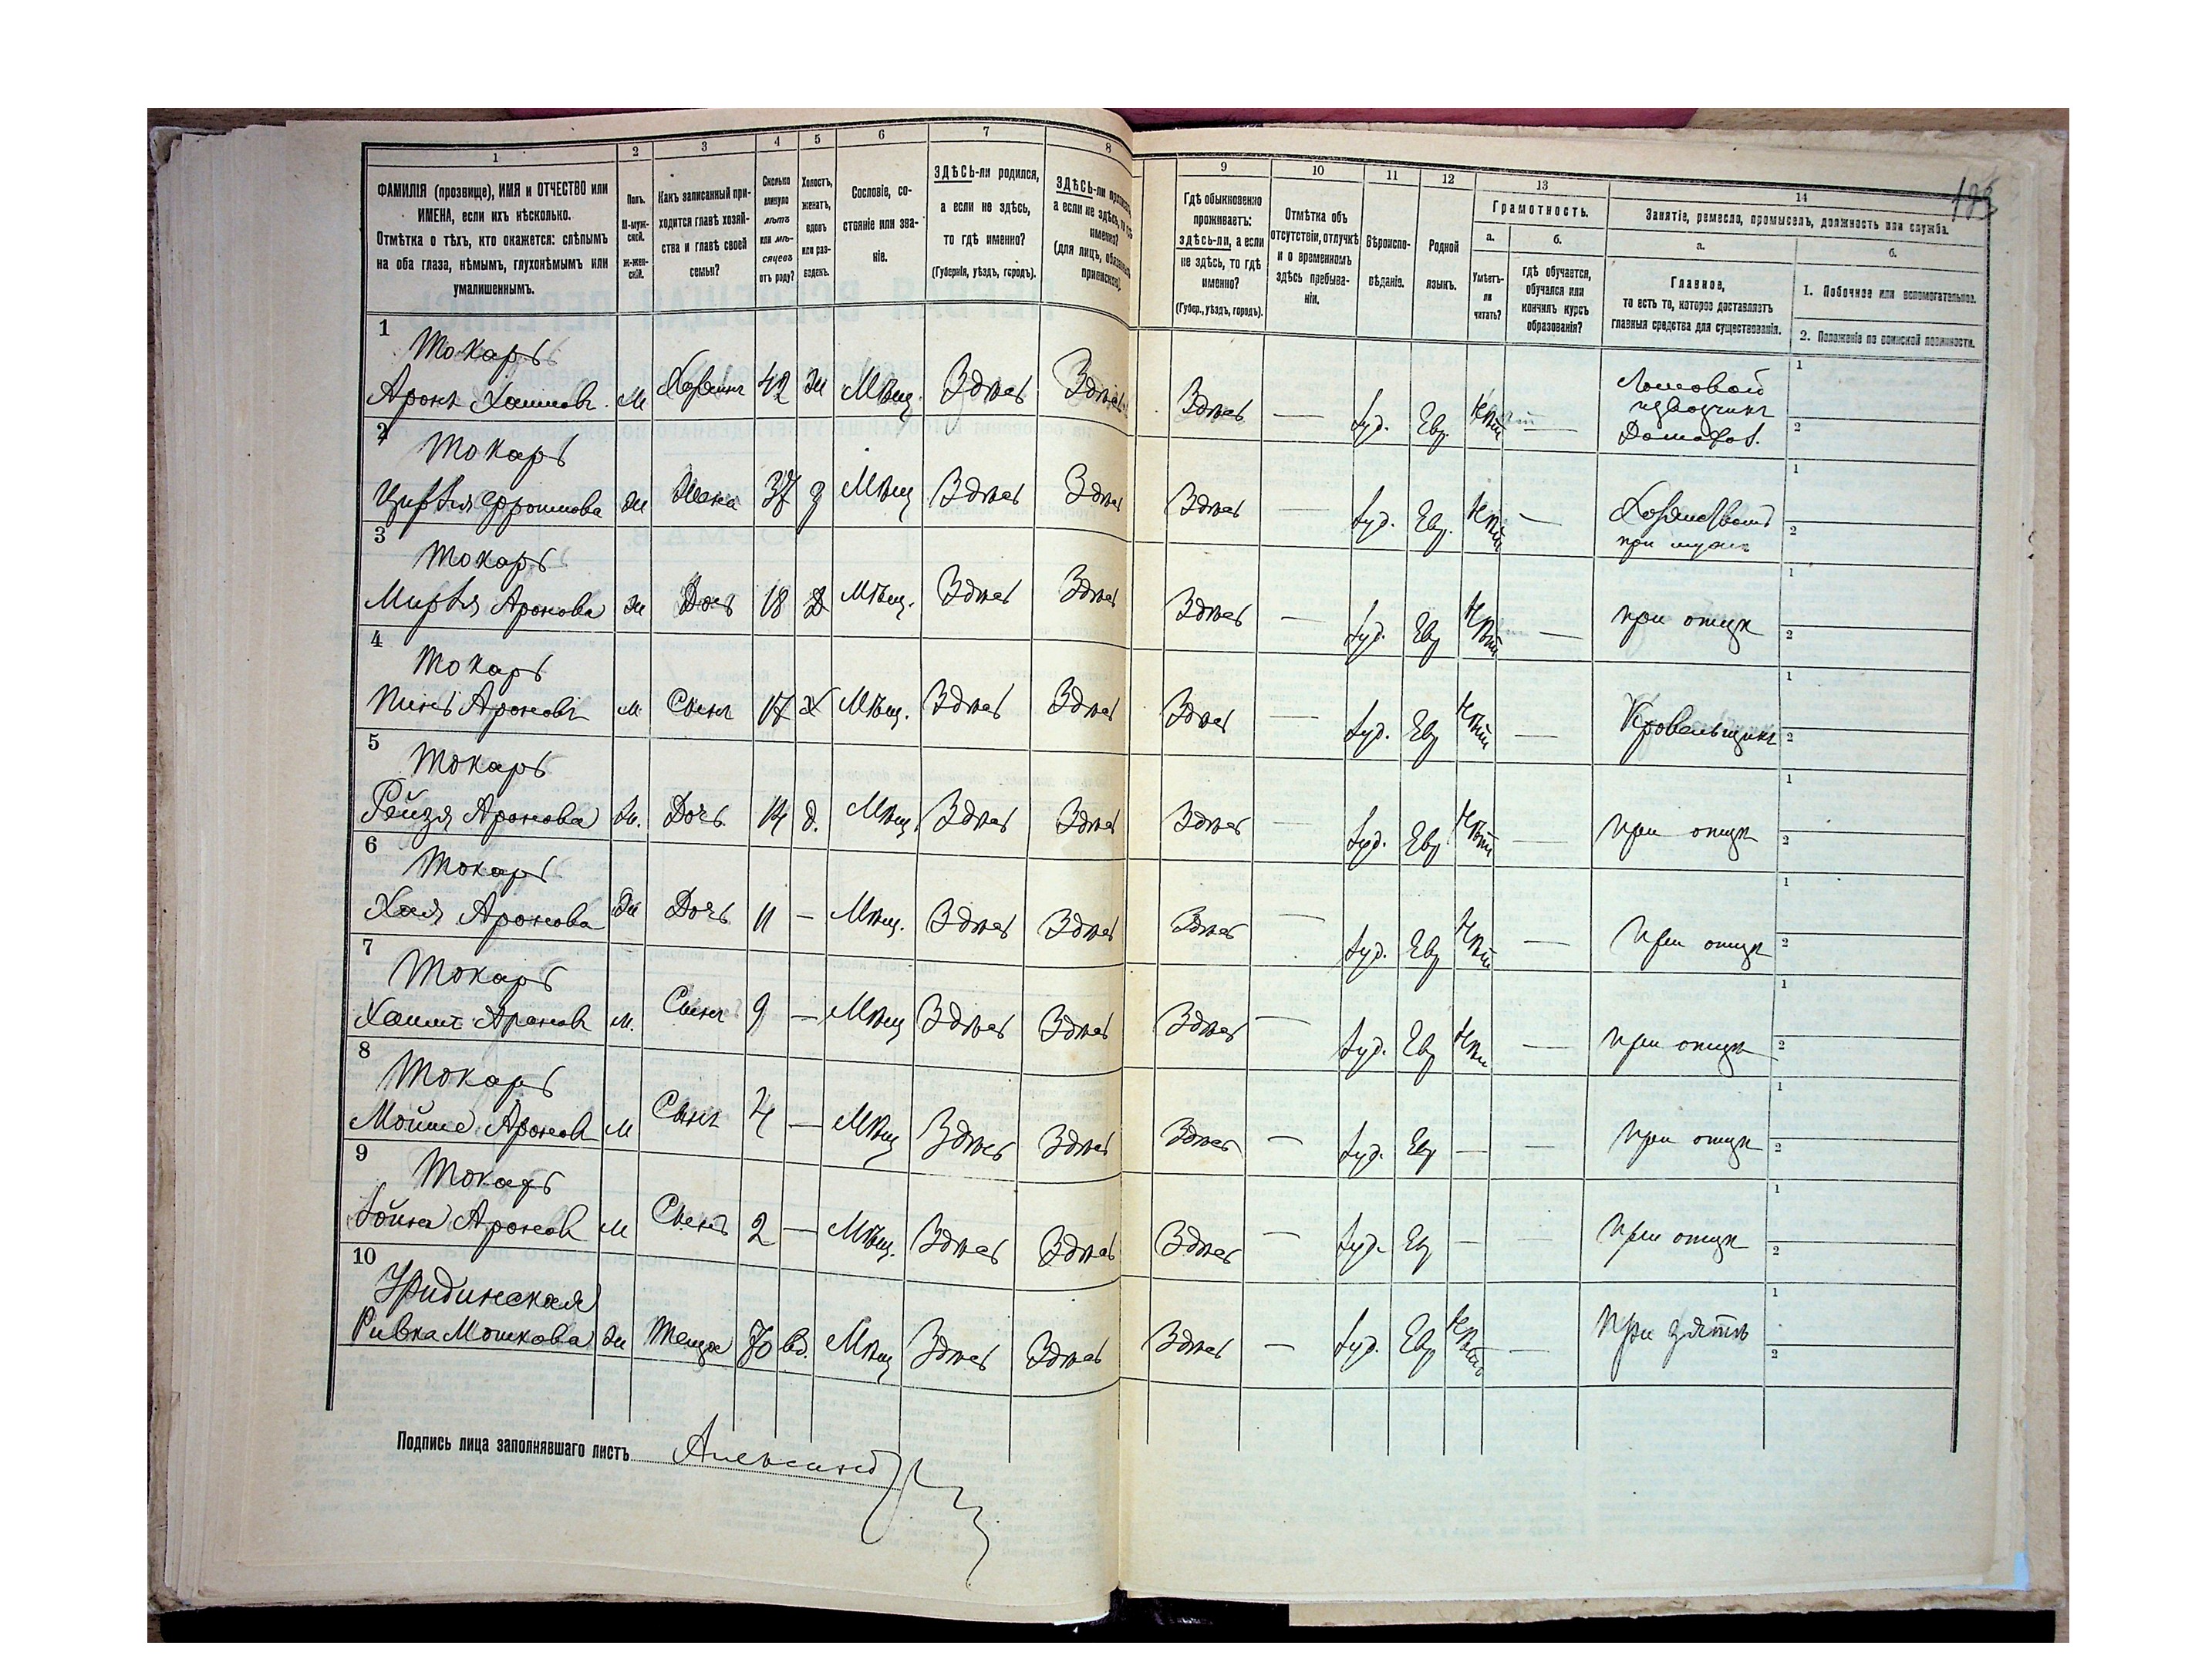 183
1 2 3 4 5 6 7 8 9 10 11 12 13 14
ФАМИЛІЯ (прозвище), ИМЯ и ОТЧЕСТВО или
ИМЕНА, если ихъ нѣсколько.
Отмѣтка о тѣхъ, кто окажется: слѣпымъ
на оба глаза, нѣмымъ, глухонѣмымъ или
умалишеннымъ.
Полъ.
М-муж-
ской.
Ж-жен-
скій.
Какъ записанный при-
ходится главѣ хозяй-
ства и главѣ своей
семьи?
Сколько
минуло
лѣтъ
или мѣ-
сяцевъ
отъ роду?
Холостъ,
женатъ,
вдовъ
или раз-
веденъ.
Сословіе, со-
стояніе или зва-
ніе.
ЗДѢСЬ-ли родился,
а если не здѣсь,
то гдѣ именно?
(Губернія, уѣздъ, городъ).
ЗДѢСЬ-ли
а если не здѣсь,
именно?
(для лицъ,
Гдѣ обыкновенно
проживаетъ:
здѣсь-ли, а если
не здѣсь, то гдѣ
именно?
(Губер., уѣздъ, городъ).
Отмѣтка объ
отсутствіи, отлучкѣ
и о временномъ
здѣсь пребыва-
ніи.
Вѣроиспо-
вѣданіе.
Родной
языкъ.
Грамотность.
а.
Умѣетъ-
ли
читать?
б.
гдѣ обучается,
обучался или
кончилъ курсъ
образованія?
Занятіе, ремесло, промыселъ, должность или служба.
а.
Главное,
то есть то, которое доставляетъ
главныя средства для существованія.
б.
1. Побочное или вспомогательное.
2. Положеніе по воинской повинности.
1 Токарь
Аронъ Хаимовъ М Хозяинъ 42 ж Мѣщ. Здѣсь Здѣсь Здѣсь — Іуд. Евр. Нѣтъ — Ломовой
извозчикъ
1
2
2 Токарь
Ж Жена 37 з Мѣщ Здѣсь Здѣсь Здѣсь — Іуд. Евр. Нѣтъ —
при мужѣ
1
2
3 Токарь
Аронова Ж Дочь 18 Д Мѣщ. Здѣсь Здѣсь Здѣсь — Іуд. Евр Нѣтъ — при отцѣ
1
2
4 Токарь
Ароновъ М Сынъ 17 х Мѣщ. Здѣсь Здѣсь Здѣсь — Іуд. Евр Нѣтъ — Кровельщикъ
1
2
5 Токарь
Рейзя Аронова Ж. Дочь 14 д. Мѣщ. Здѣсь Здѣсь Здѣсь — Іуд. Евр Нѣтъ — При отцѣ
1
2
6 Токарь
Хая Аронова Ж Дочь 11 — Мѣщ. Здѣсь Здѣсь Здѣсь — Іуд. Евр Нѣтъ — При отцѣ
1
2
7 Токарь
Хаимъ Ароновъ М. Сынъ 9 — Мѣщ Здѣсь Здѣсь Здѣсь — Іуд. Евр Нѣтъ — При отцѣ
1
2
8 Токарь
Мойше Ароновъ М Сынъ 4 — Мѣщ Здѣсь Здѣсь Здѣсь — Іуд. Евр — — При отцѣ
1
2
9 Токарь
Ароновъ М Сынъ 2 — Мѣщ. Здѣсь Здѣсь Здѣсь — Іуд. Евр — — При отцѣ
1
2
10
Ривка Мошкова Ж Теща 70 вд. Мѣщ Здѣсь Здѣсь Здѣсь — Іуд. Евр Нѣтъ — При зятѣ
1
2
Подпись лица заполнявшаго листъ